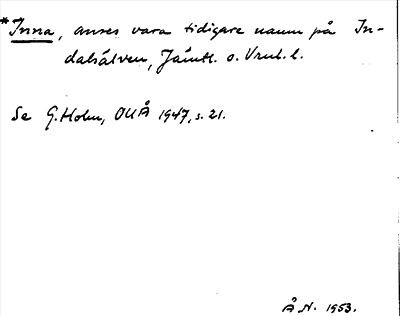 *Inna, anses vara tidigare namn på In-
dalsälven, Jämtl. o. Vrnl. l.
Se G. Holm, OUÅ 1947, s. 21.
Å N. 1953.